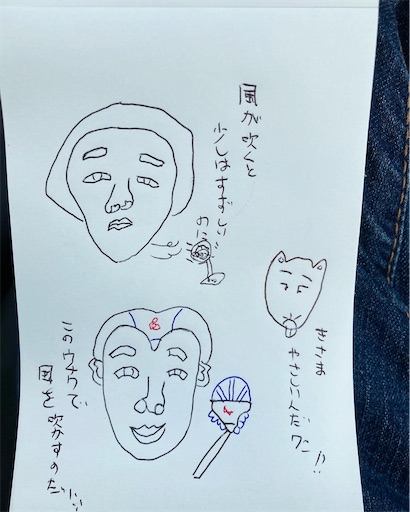 風が吹くと
少しはすずしい
のに
きさま
やさしいんだワン!!
このウチワで
風を吹かすのだ!!